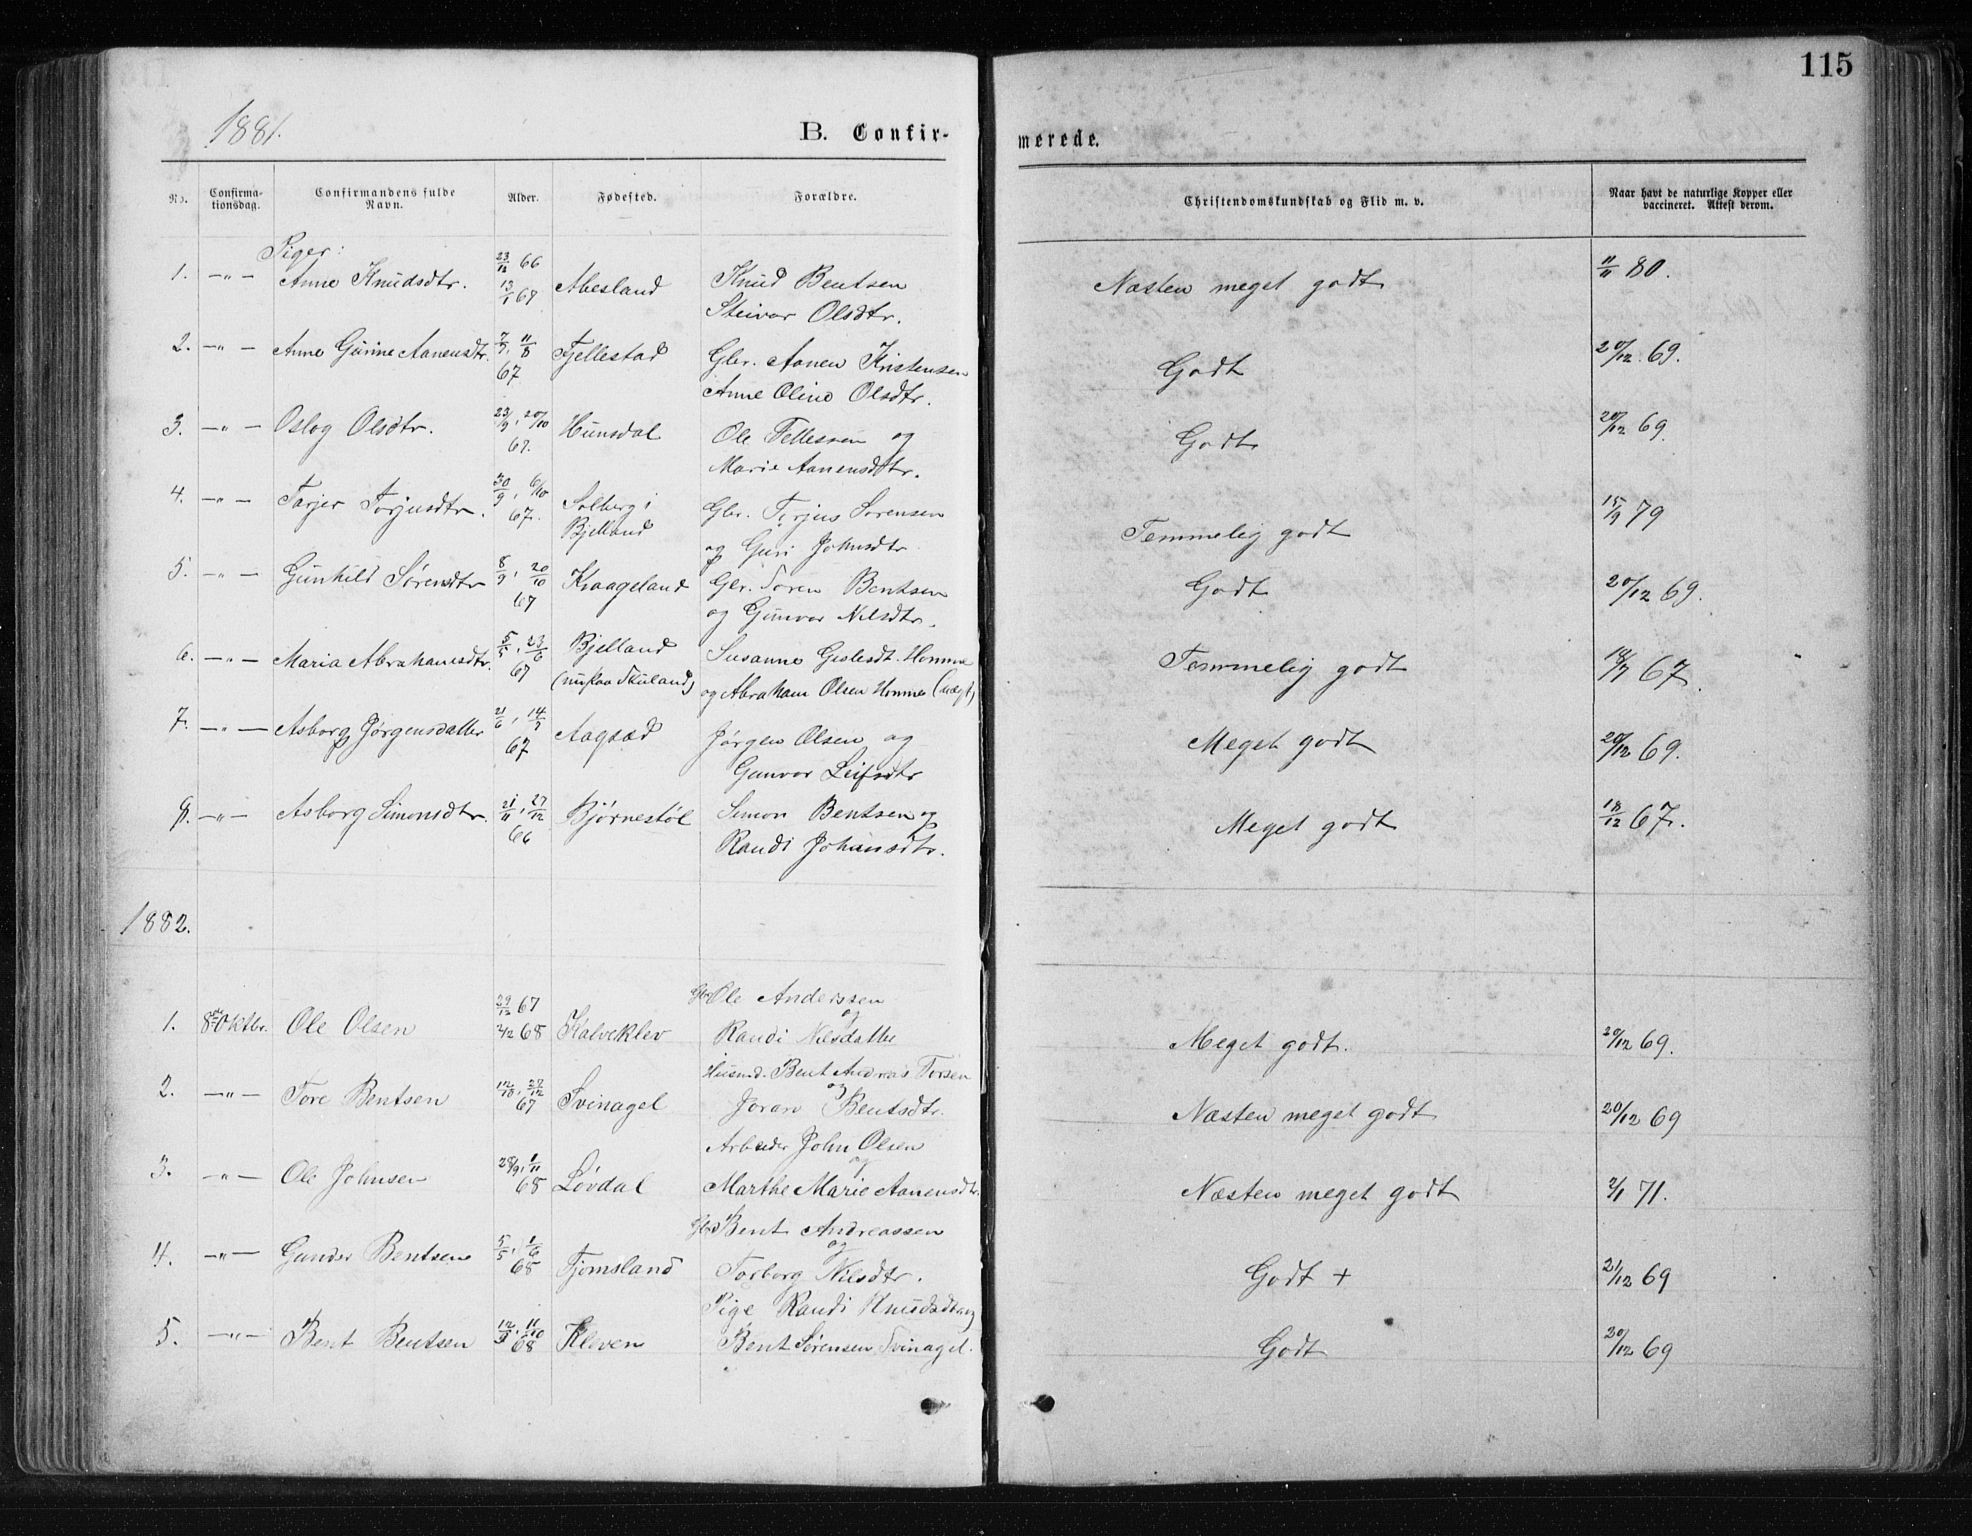 115
1881.
B. Confirmerede.
No. Confirmationsdag. Confirmandens fulde Navn. Alder. Fødested. Forældre. Christendomskundskab og Flid m. v. Naar havt de naturlige Kopper eller vaccineret. Attest derom.
Piger:
1. —„— Anne Knudsdtr. 23/12 66 13/1 67 Abesland Knud Bentsen Næsten meget godt 11/11 80.
Olsdtr.
2. —„— Anne Gurine Aanensdtr. 7/7, 11/8 67 Fjellestad Gbr. Aanen Kristensen Godt 20/12. 69.
Anne Oline Olsdtr.
3. —„— Oslog Olsdtr. 23/9, 20/10 67. Hunsdal Ole Tellessen og Godt 20/12 69.
Marie Aanensdtr.
4. —„— Tarjer Torjusdtr. 30/9, 6/10 67. Solberg i Bjelland Gbr. Terjus Sorensen Temmelig godt 15/9 79
og Guri Johnsdtr
5. —„— Gunhild Sørensdtr 8/9, 20/10 67 Kraageland Gbr. Soren Bentsen Godt 20/12 69.
og Gunvor Nilsdtr.
6. —„— Maria Abrahamsdtr. 5/5, 23/6 67 Bjelland Susanne Geslesdt. Homme Temmelig godt 18/7 67.
og Abraham Olsen Homme
7. —„— Asborg Jørgensdatter 21/6, 14/7 67 Aagsæd Jørgen Olsen og Meget godt 20/12 69.
Gunvor Leifsdtr
8. —„— Asborg Simonsdtr. 21/11, 27/12 66 Bjørnestøl Simon Bentsen og Meget godt 18/12 67.
Randi Johansdtr.
1882.
Gbr. Ole Anderssen
og
1. 8de Oktbr. Ole Olsen 29/12 67 2/2 68 Kalveklev Randi Nilsdatter Meget godt. 20/12 69.
Husmd. Bent Andreas Torsen
og
2. —„— Tore Bentsen 12/10, 27/12 67 Svinagel Joran Bentsdtr. Næsten meget godt 20/12 69
Arbeider John Olsen
og
3. —„— Ole Johnsen 28/9, 1/11 68 Løvdal Marthe Marie Aanensdtr. Næsten meget godt 2/1 71.
Gbr. Bent Andreassen
og
4. —„— Gunder Bentsen 5/5, 1/6 68 Tjomsland Torborg Nilsdtr. Godt + 21/12 69
Pige Randi Knudsdtr og
5. —„— Bent Bentsen 68 Kleven Bent Sørensen Svinagel. Godt 20/12 69